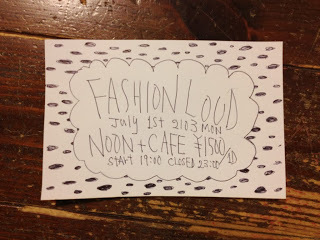 FASHION LOUD
July 1st 2103 MON
NOON + CAFE ¥1500/1D
START 19:00 CLOSED 23:00